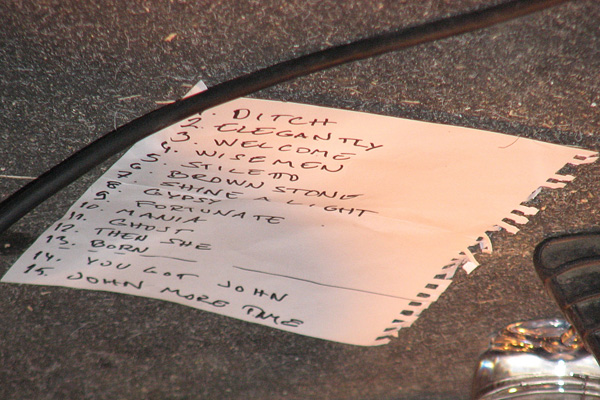 DITCH
2. ELEGANTLY
3. WELCOME
4. WISEMEN
5. STILETTO
6. BROWN STONE
7. SHINE A LIGHT
8. GYPSY
9. FORTUNATE
10. MANIX
11. GHOST
12. THEN SHE
13. BORN
14. YOU GOT JOHN
15. JOHN MORE TIME